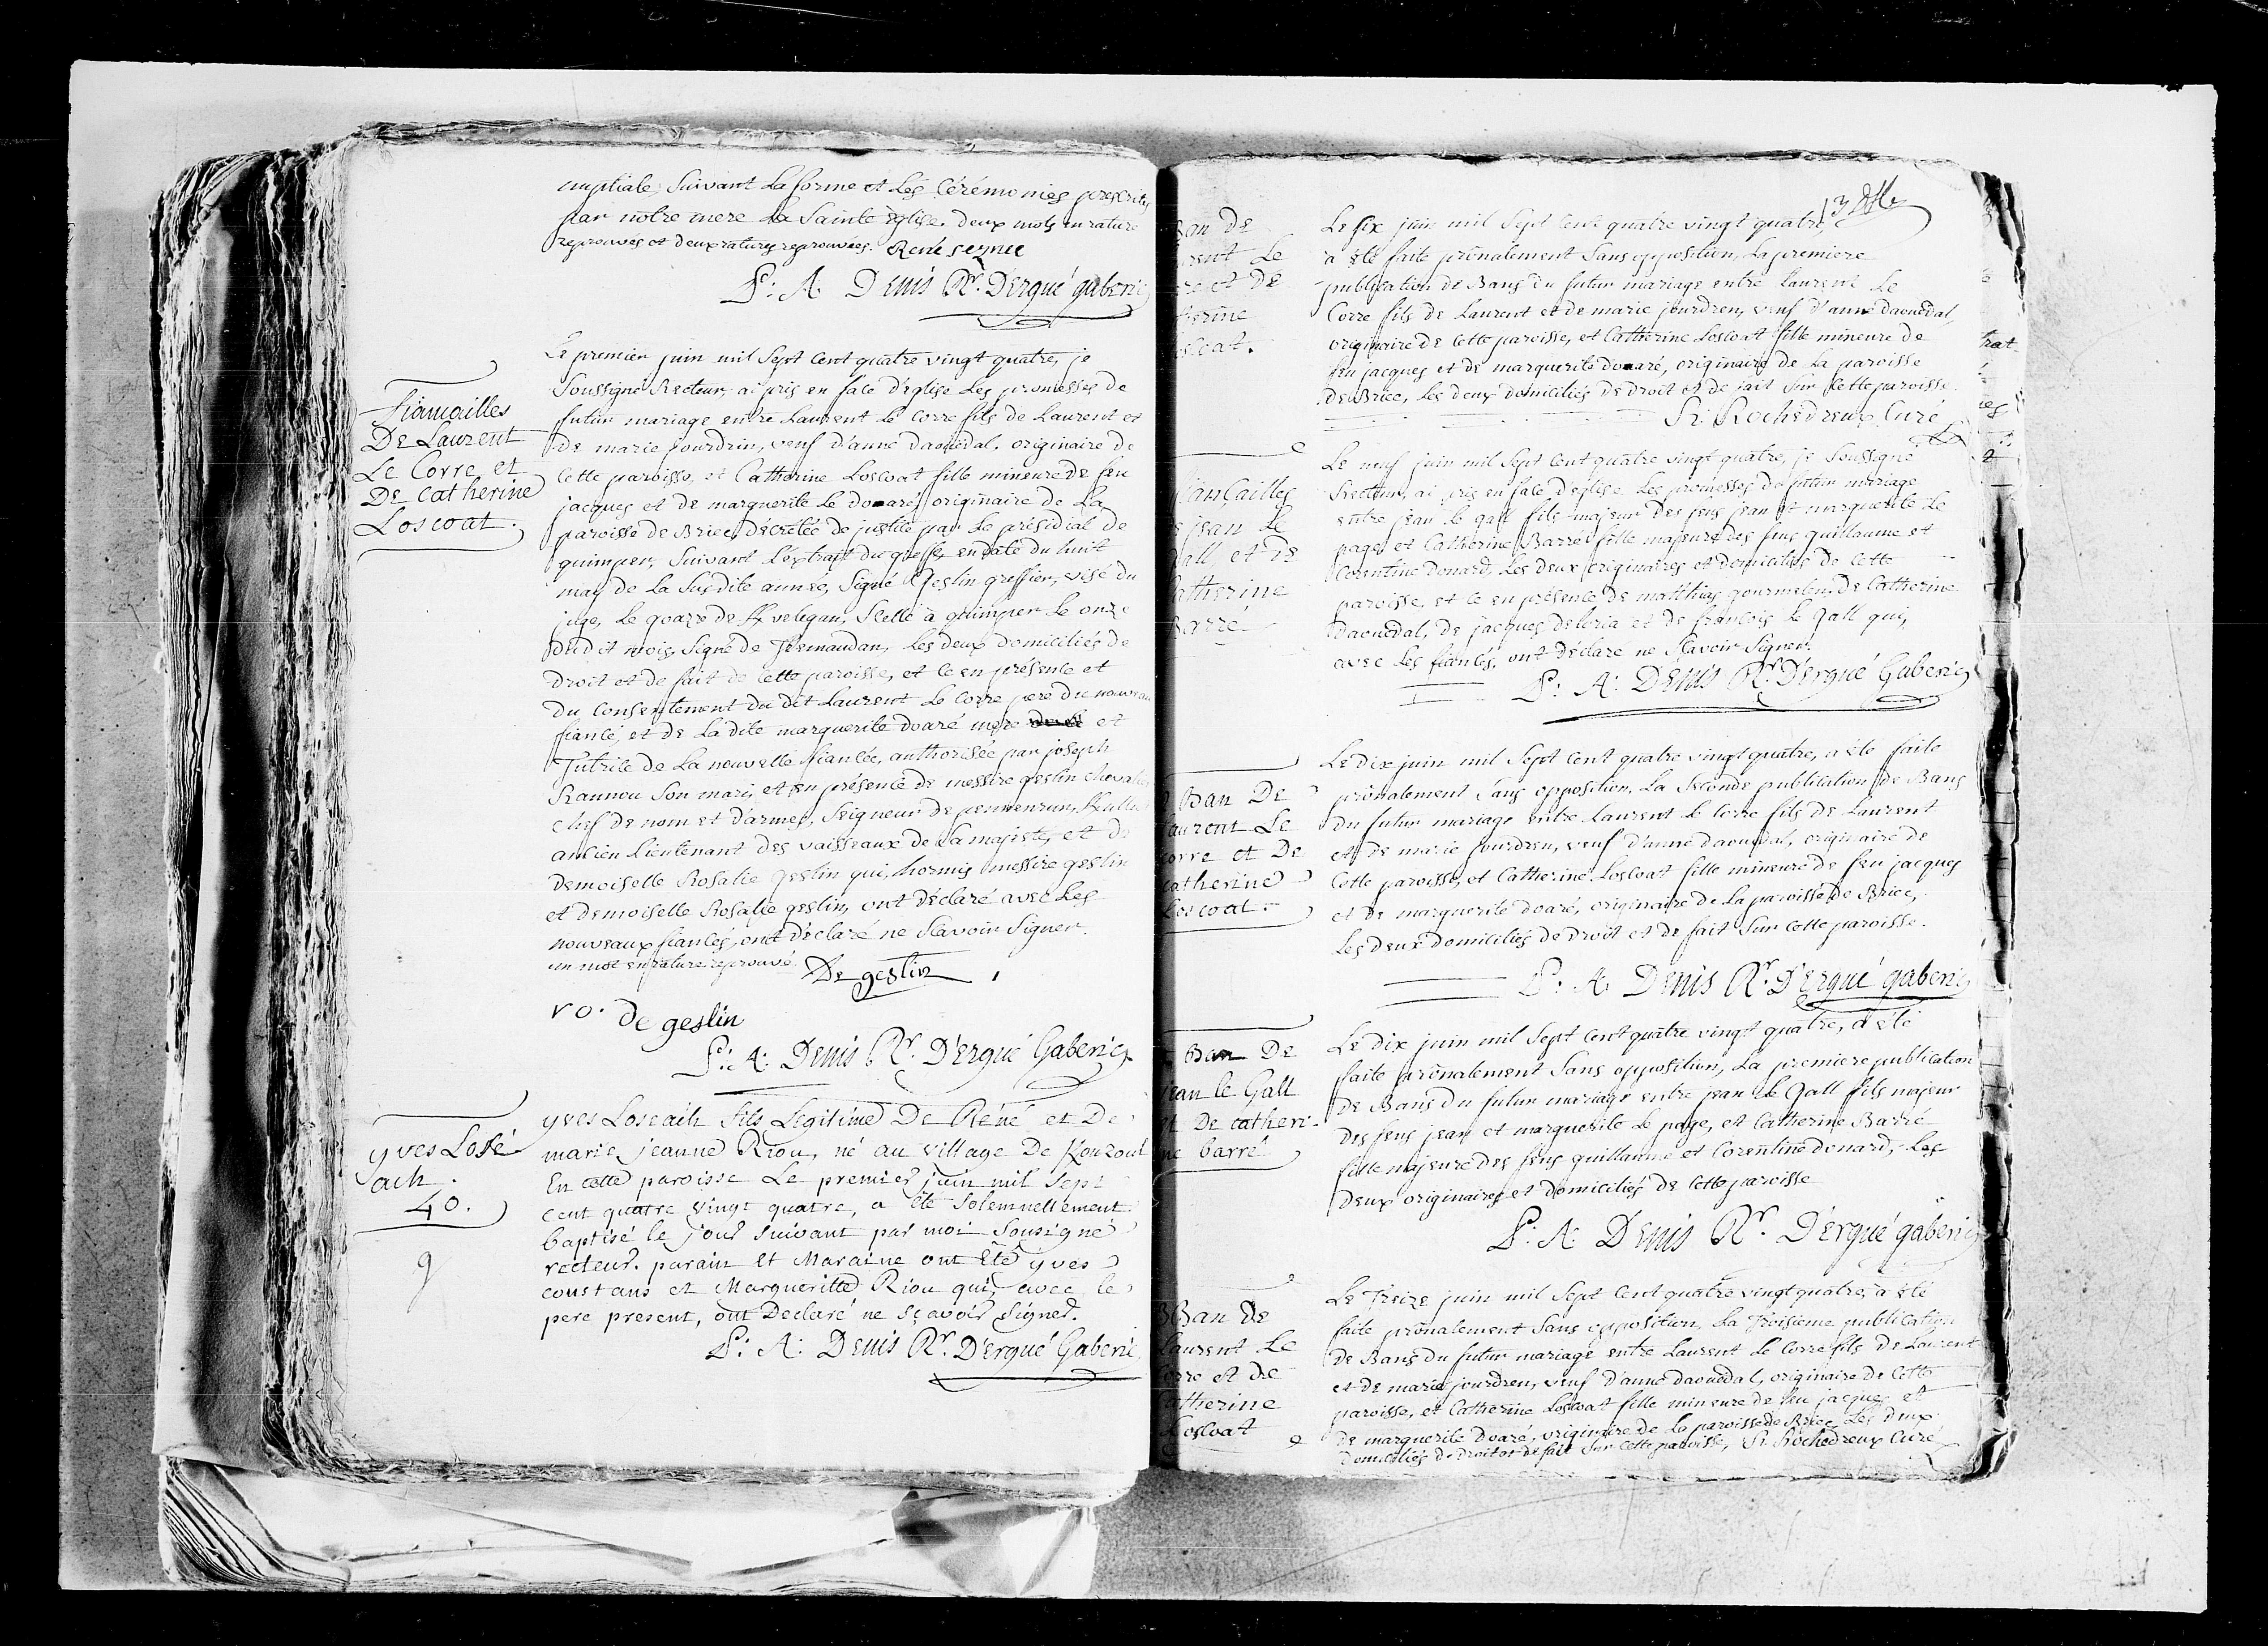 nuptiale, suivant la forme et les Cérémonies prescrites
par notre mere la Sainte Eglise. deux mots en rature
reprouvés et deux ratures reprouvées. René seznec
P: A: Denis Rr. D'ergué gaberic
Fiançailles
De Laurent
Le Corre, et
De Catherine
Loscoat.
Le premier juin mil Sept Cent quatre vingt quatre, je
Soussigné Recteur, ai pris en face d'église Les promesses de
futur mariage entre Laurent Le Corre fils de Laurent et
de marie jourdrin, veuf d'anne daouedal, originaire de
Cette paroisse, et Catherine Loscoat fille mineure de feu
jacques et de marguerite Le doaré, originaire de La
paroisse de Briec, décrétée de justice par Le présidial de
quimper, Suivant L'extrait du greffe, en date du huit
may de La Susdite année, Signé Geslin greffier, visé du
juge, Le goazre de Kvelegan, Scellé à quimper Le onze
Dudit mois, Signé de Kernaudan, Les deux domiciliés de
Droit et de fait de Cette paroisse, et ce en présence et
du Consentement du dit Laurent Le Corre pere du nouveau
fiancé, et de La dite marguerite doaré mere et
Tutrice de La nouvelle fiancée, authorisée par joseph
Rannou Son mari, et en présence de messire geslin chevalier
Chef de nom et d'armes, Seigneur de pennenrun,
ancien Lieutenant des vaisseaux de Sa majesté, et de
Demoiselle Rosalie geslin qui, hormis messire geslin
et demoiselle Rosalie geslin, ont déclaré avec Les
nouveaux fiancés, ont déclaré ne Sçavoir Signer.
un mot en rature reprouvé. De geslin
ro. de geslin
P: A: Denis Rr. D'ergué Gaberic
yves Losé
ach.
40.
yves Loseach fils Legitime De René et De
marie jeanne Riou, né au village De Kouzout
En cette paroisse Le premier juin mil Sept
cent quatre vingt quatre, a été Solemnellement
baptisé le jour suivant par moi Sousigné
recteur. parain et Maraine ont Eté yves
constans et Margueritte Riou qui, avec le
pere present, ont Declaré ne sçavoir signer.
P: A: Denis Rr. D'ergué Gaberic
13
Ban de
rent Le
re et de
herine
oscoat.
Le Six juin mil Sept Cent quatre vingt quatre,
a été faite prônalement Sans opposition, La premiere
publication de Bans du futur mariage entre Laurent Le
Corre fils de Laurent et de marie jourdren, veuf d'anne daouedal,
originaire de Cette paroisse, et Catherine Loscoat fille mineure de
feu jacques et de marguerite doaré, originaire de La paroisse
de Briec, Les deux domiciliés de Droit et de fait Sur Cette paroisse.
Rochedreux Curé
fiançailles
e jean Le
Gall et de
Catherine
Barré
Le neuf juin mil Sept Cent quatre vingt quatre, je Soussigné
Recteur, ai pris en face d'église Les promesses de futur mariage
entre jean Le gall fils majeur des feus jean et marguerite Le
page, et Catherine Barré fille majeure des feus guillaume et
Corentine donard, Les deux originaires et domiciliés de Cette
paroisse, et ce en présence de matthias gourmelen, de Catherine
Daouedal, de jacques deloria et de françois Le Gall qui,
avec Les fiancés, ont déclaré ne Sçavoir Signer.
P: A: Denis Rr. D'ergué Gaberic
Ban De
aurent Le
orre et De
catherine
Loscoat.
Le dix juin mil Sept Cent quatre vingt quatre, a été faite
prônalement Sans opposition, La Seconde publication de Bans
du futur mariage entre Laurent Le Corre fils de Laurent
et de marie jourdren, veuf d'anne daouedal, originaire de
Cette paroisse, et Catherine Loscoat fille mineure de feu jacques
et de marguerite doaré, originaire de La paroisse de Briec,
Les deux domiciliés de Droit et de fait Sur Cette paroisse.
P: A: Denis Rr. D'ergué gaberic
Ban De
jean le Gall
et De catheri-
ne barré
Le dix juin mil Sept Cent quatre vingt quatre, a été
faite prônalement Sans opposition, La premiere publication
de Bans du futur mariage entre jean Le Gall fils majeur
des feus jean et marguerite Le page, et Catherine Barré
fille majeure des feus guillaume et Corentine donard, Les
deux originaires et domiciliés de Cette paroisse
P: A: Denis Rr. D'ergué gaberic
3 Ban de
Laurent Le
orre et de
atherine
Loscoat
Le Treize juin mil Sept Cent quatre vingt quatre, a été
faite prônalement Sans opposition, La Troisieme publication
de Bans du futur mariage entre Laurent Le Corre fils de Laurent
et de marie jourdren, veuf d'anne daouedal, originaire de Cette
paroisse, et Catherine Loscoat fille mineure de feu jacques et
de marguerite doaré, originaire de La paroisse de Briec, Les deux
domiciliés de Droit et de fait Sur Cette paroisse, Rochedreux Curé